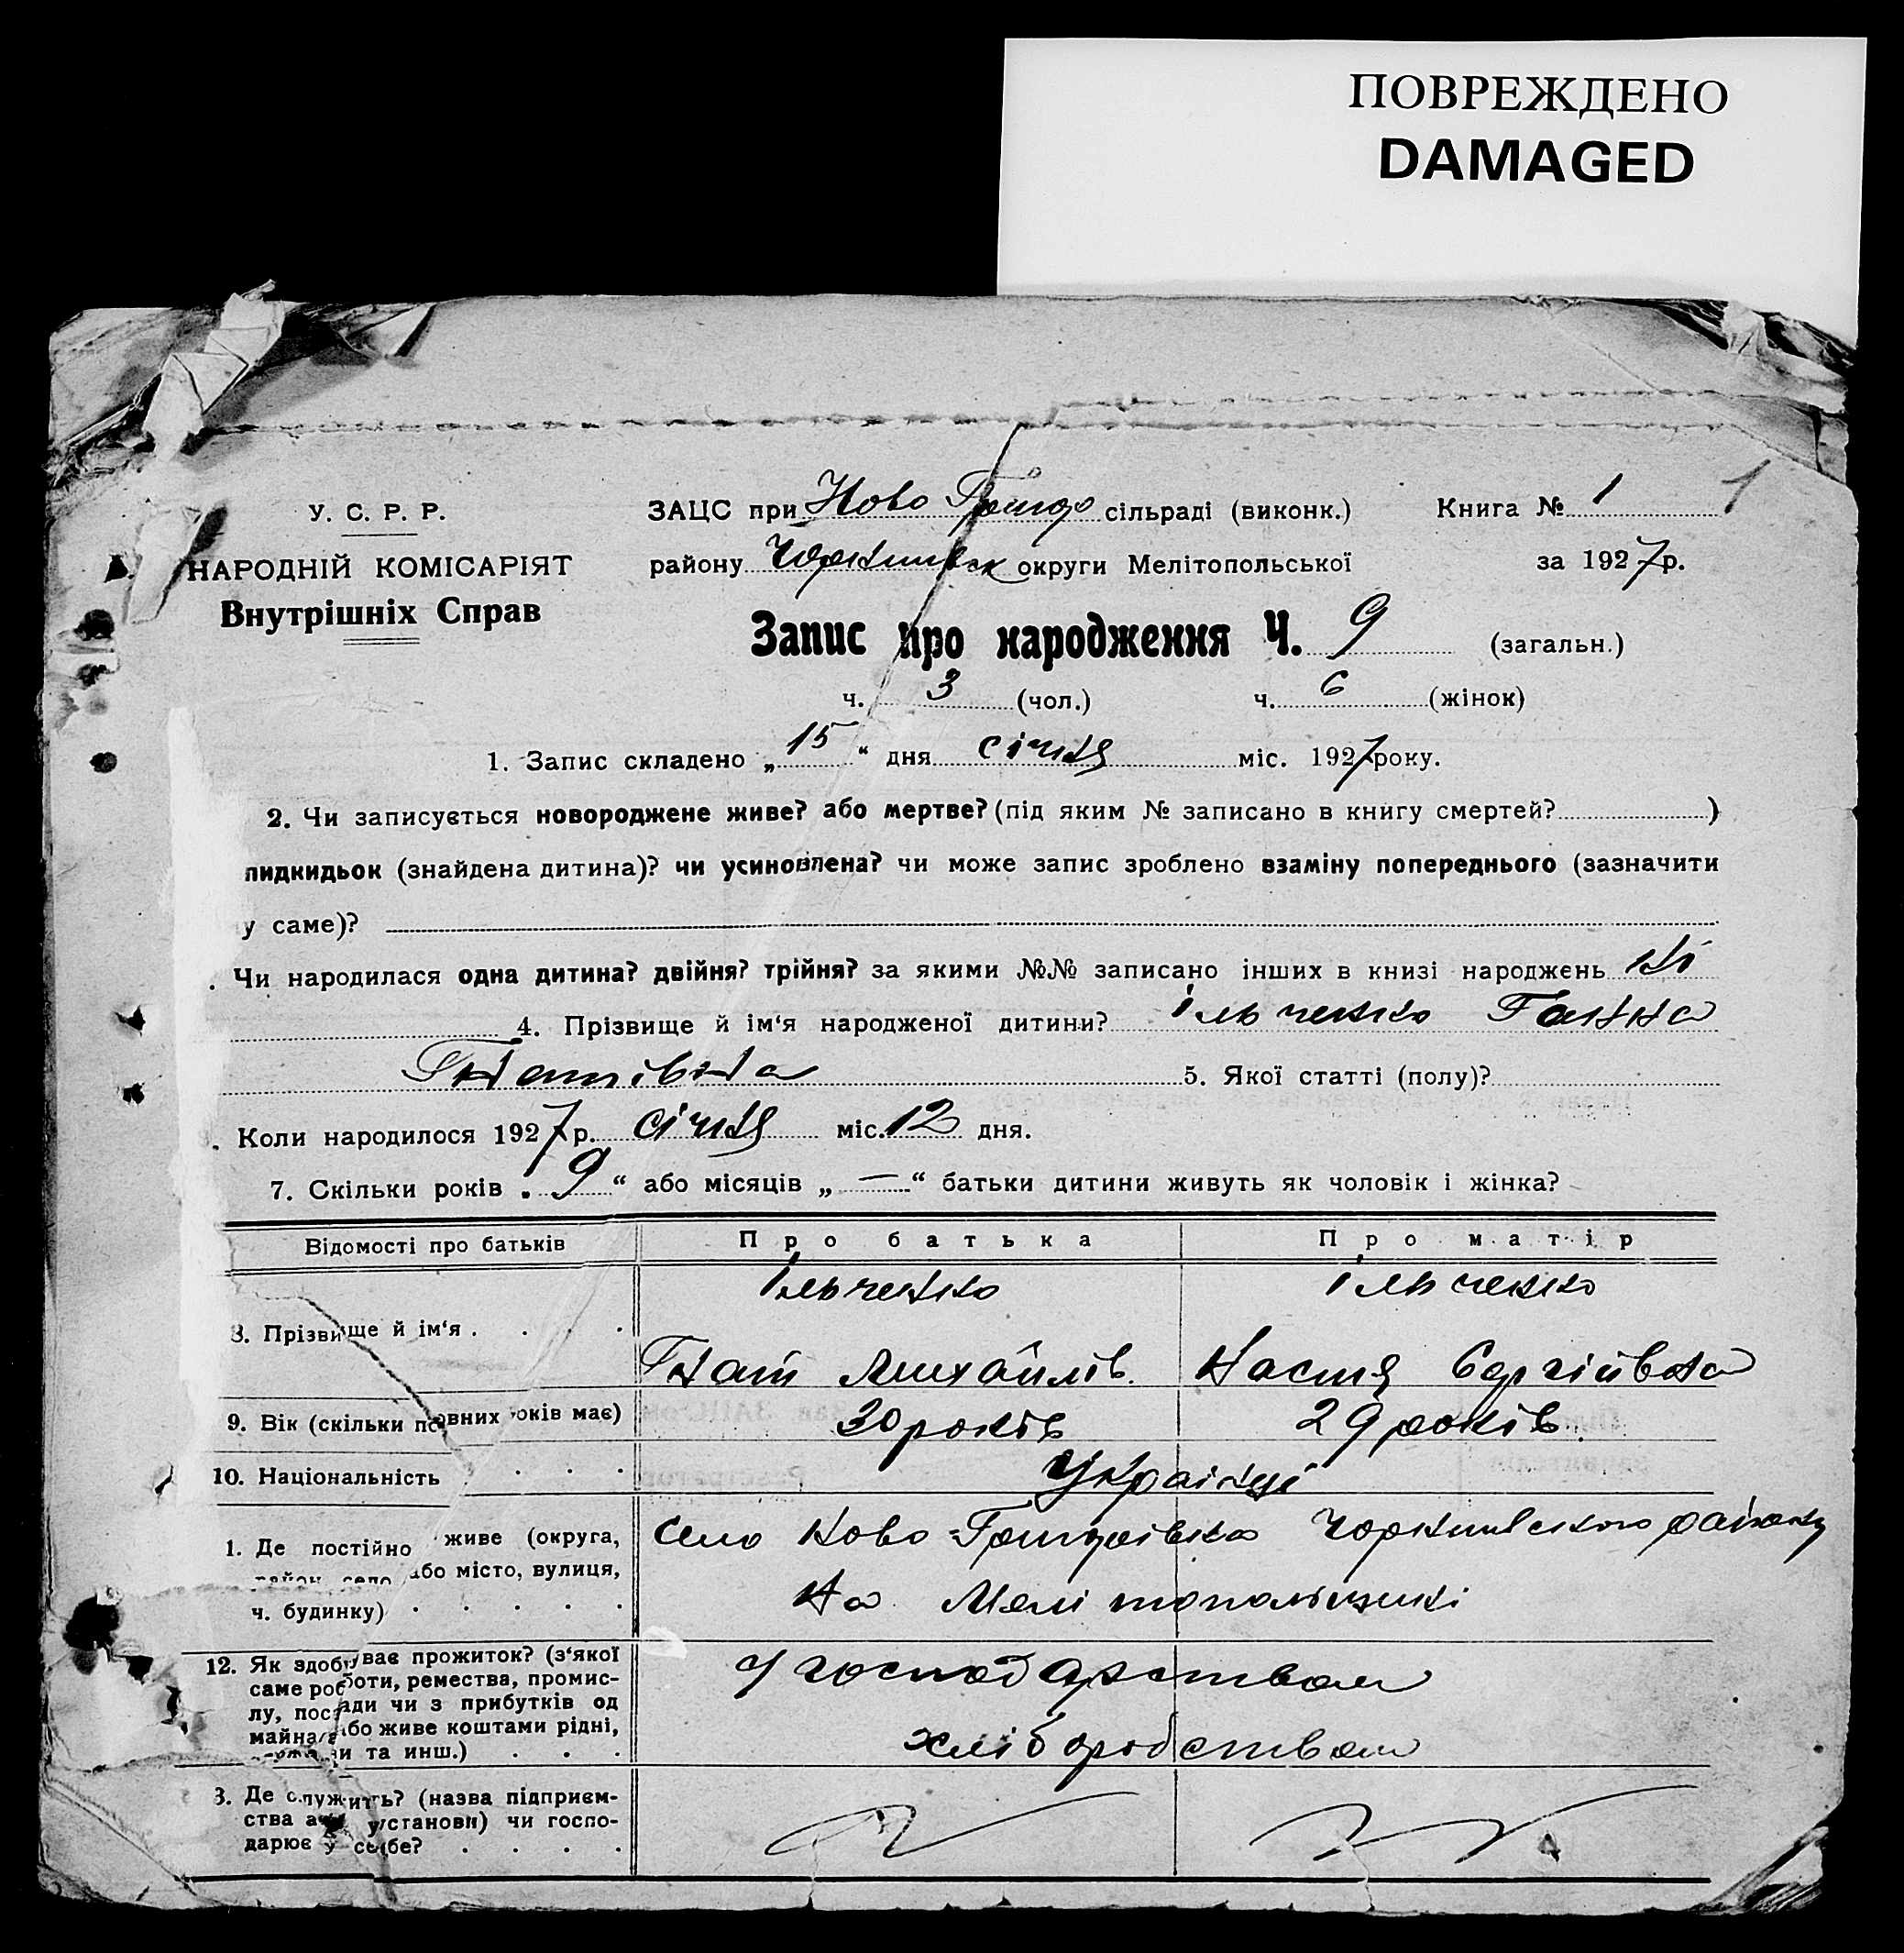 ПОВРЕЖДЕНО
DAMAGED
У. С. Р. Р.
НАРОДНІЙ КОМІСАРІЯТ
Внутрішніх Справ
ЗАЦС при Ново Григор сільраді (виконк.)
району Чорнигівськ округи Мелітопольської
Книга № 1 1
за 1927 р.
Запис про народження Ч. 9 (загальн.)
ч. 3 (чол.) ч. 6 (жінок)
1. Запис складено „15“ дня січня міс. 1927 року.
2. Чи записується новороджене живе? або мертве? (під яким № записано в книгу смертей? )
пидкидьок (знайдена дитина)? чи усиновлена? чи може запис зроблено взаміну попереднього (зазначити
у саме)?
. Чи народилася одна дитина? двійня? трійня? за якими №№ записано інших в книзі народжень ні
4. Прізвище й ім'я народженої дитини? Ільченко Ганна
Гнатівна 5. Якої статті (полу)?
. Коли народилося 1927 р. січня міс. 12 дня.
7. Скільки років „9“ або місяців „—“ батьки дитини живуть як чоловік і жінка?
Відомості про батьків Про батька Про матір
8. Прізвище й ім'я . . . .
Ільченко Ільченко
Гнат Михайлів. Настя Сергіївна
9. Вік (скільки повних років має) 30 років 29 років.
10. Національність . . . Українці
1. Де постійно живе (округа,
район, село або місто, вулиця,
ч. будинку) . . . . .
Село Ново-Григорівка Чорнигівського району
на Мелітопольщині
12. Як здобуває прожиток? (з'якої
саме роботи, ремества, промис-
лу, посади чи з прибутків од
майна або живе коштами рідні,
держави та инш.) . . .
господарством
хліборобством
3. Де служить? (назва підприєм-
ства або установи) чи госпо-
дарює у себе? . . . .